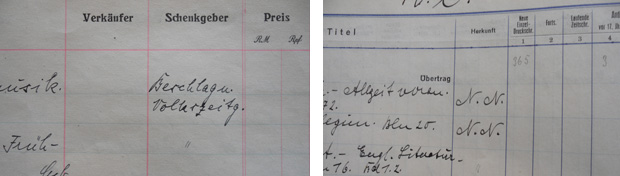 Verkäufer Schenkgeber Preis
RM. Rpf.
usik. Beschlagn.
Volkszeitg.
Früh- "
Titel Herkunft Neue Einzel- Drucksche. Forts. Laufende Zeitschr.
1 2 3 4
Übertrag 265 3
Allzeit voran. N.N.
72.
Bln 20. N.N.
t.- Engl. Literatur-
16. Bd 1.2.